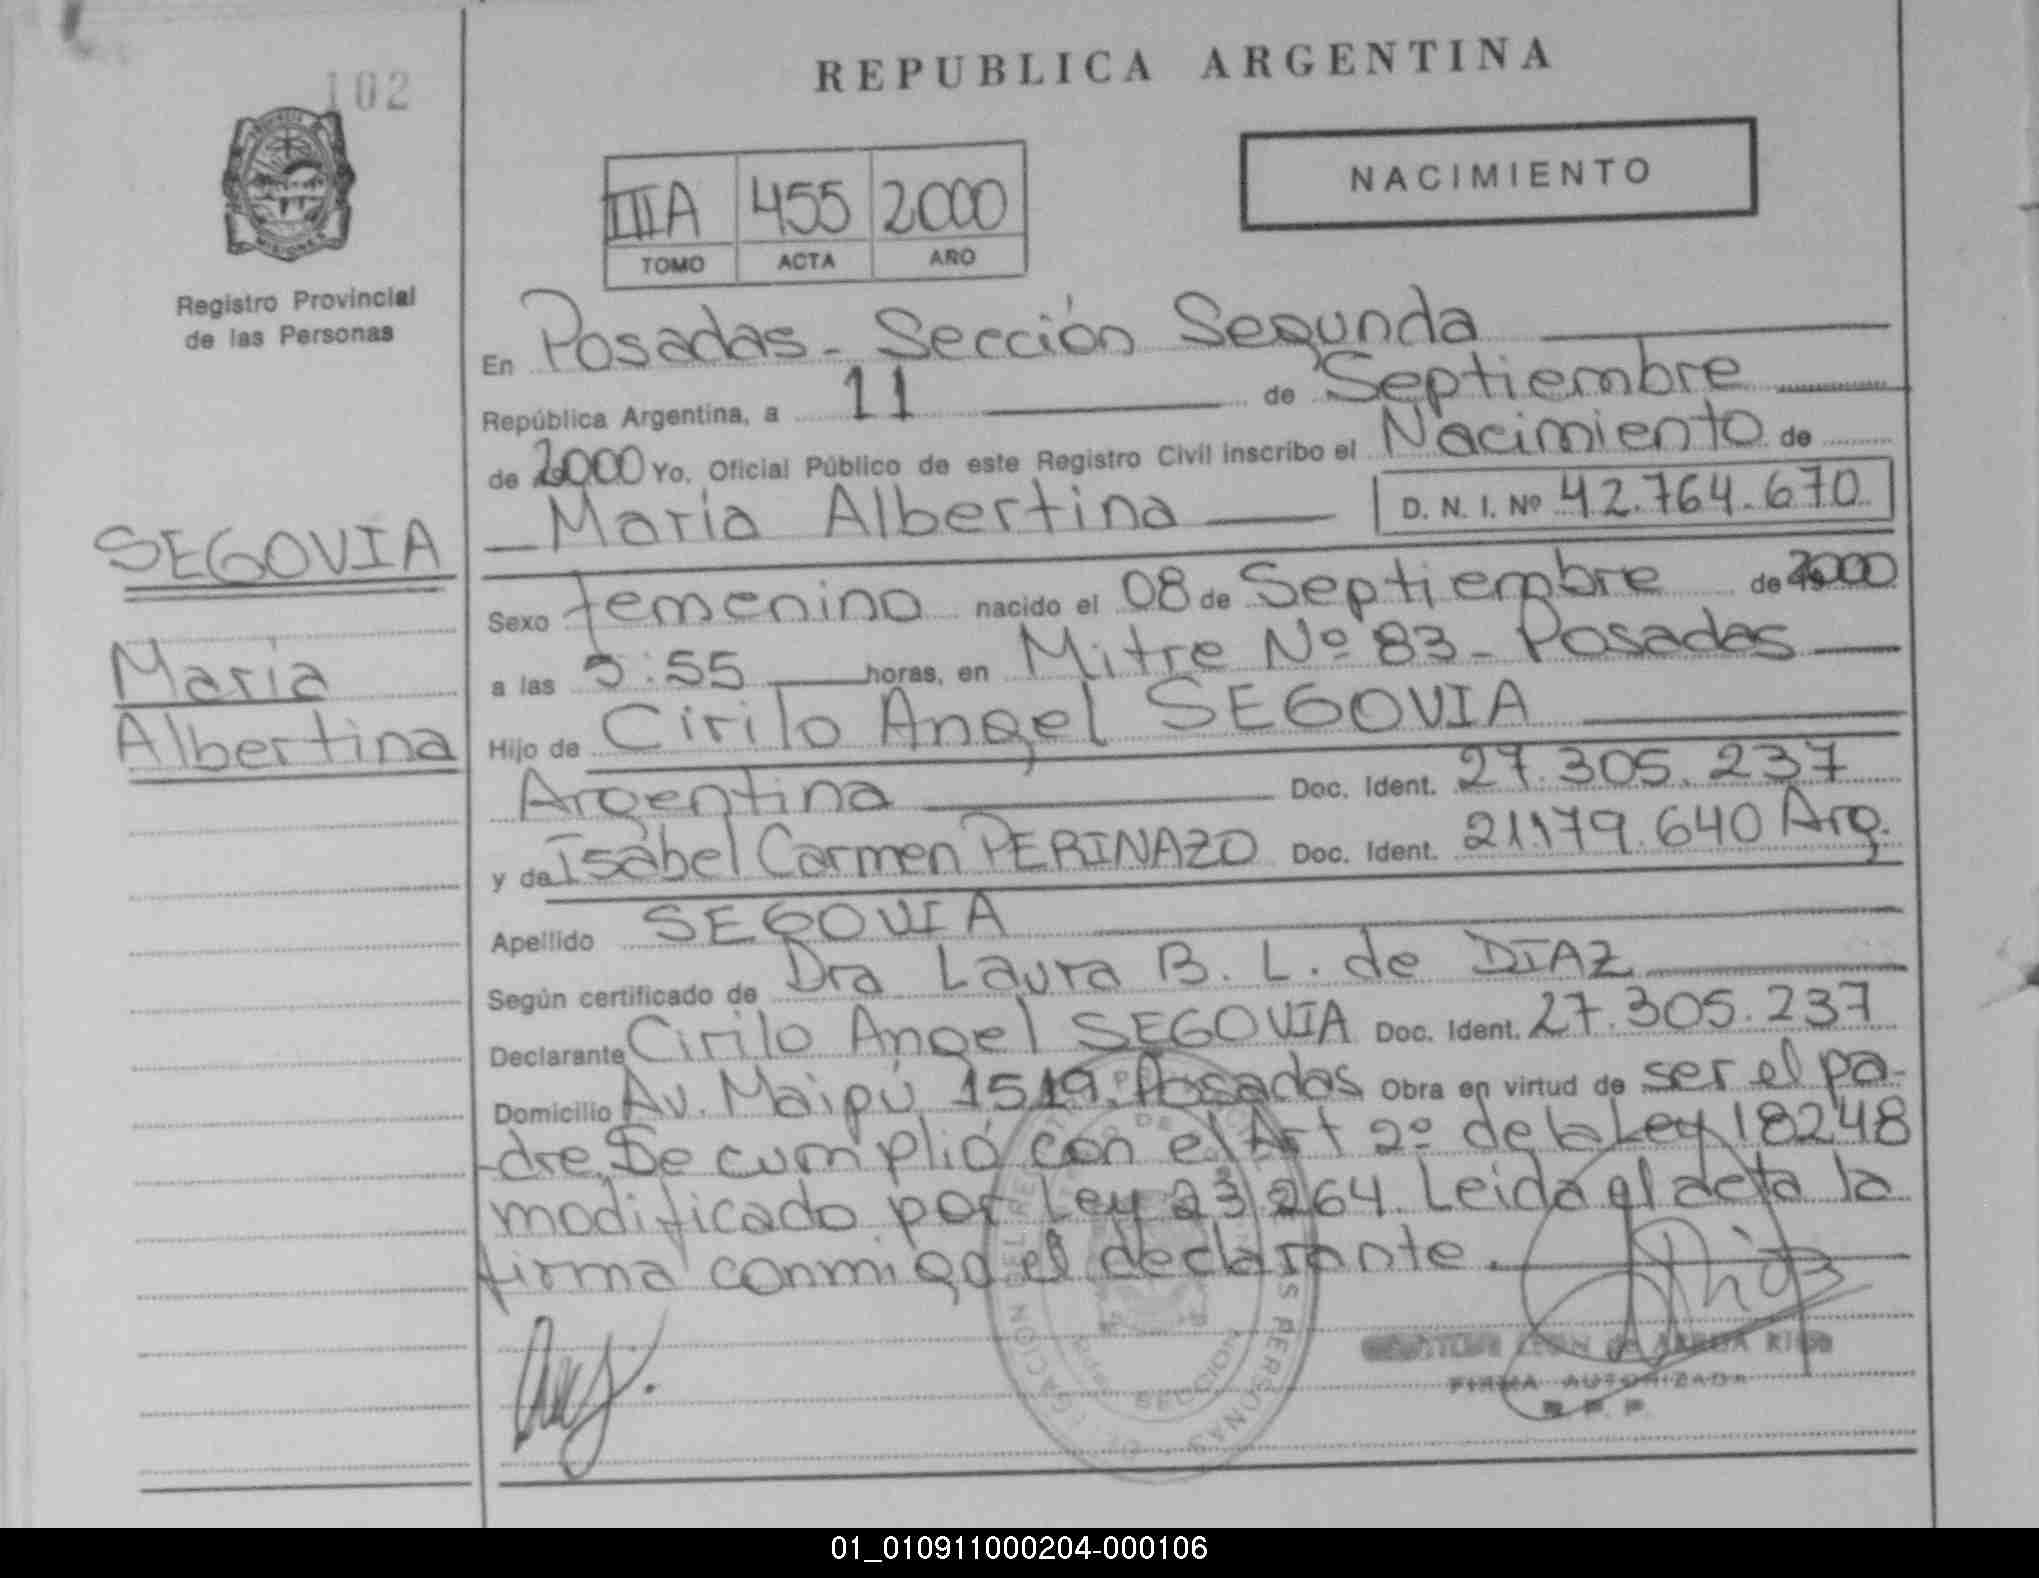 102
REPUBLICA ARGENTINA
NACIMIENTO
IIIA 455 2000
TOMO ACTA AÑO
Registro Provincial
de las Personas
En Posadas - Sección Segunda
República Argentina, a 11 de Septiembre
de 2000 Yo, Oficial Público de este Registro Civil inscribo el Nacimiento de
María Albertina D. N. I. Nº 42.764.670
SEGOVIA
María
Albertina
Sexo femenino nacido el 08 de Septiembre de 2000
a las 5:55 horas, en Mitre Nº 83 - Posadas
Hijo de Cirilo Angel SEGOVIA
Argentina Doc. Ident. 27.305.237
y de Isabel Carmen PERINAZO Doc. Ident. 21.179.640 Arg.
Apellido SEGOVIA
Según certificado de Dra Laura B. L. de DIAZ
Declarante Cirilo Angel SEGOVIA Doc. Ident. 27.305.237
Domicilio Av. Maipú 1519. Posadas Obra en virtud de ser el pa-
-dre. Se cumplió con el Art 2º de la Ley 18248
modificado por Ley 23264. Leida el acta la
firma conmigo el declarante.
FIRMA AUTORIZADA
01_010911000204-000106